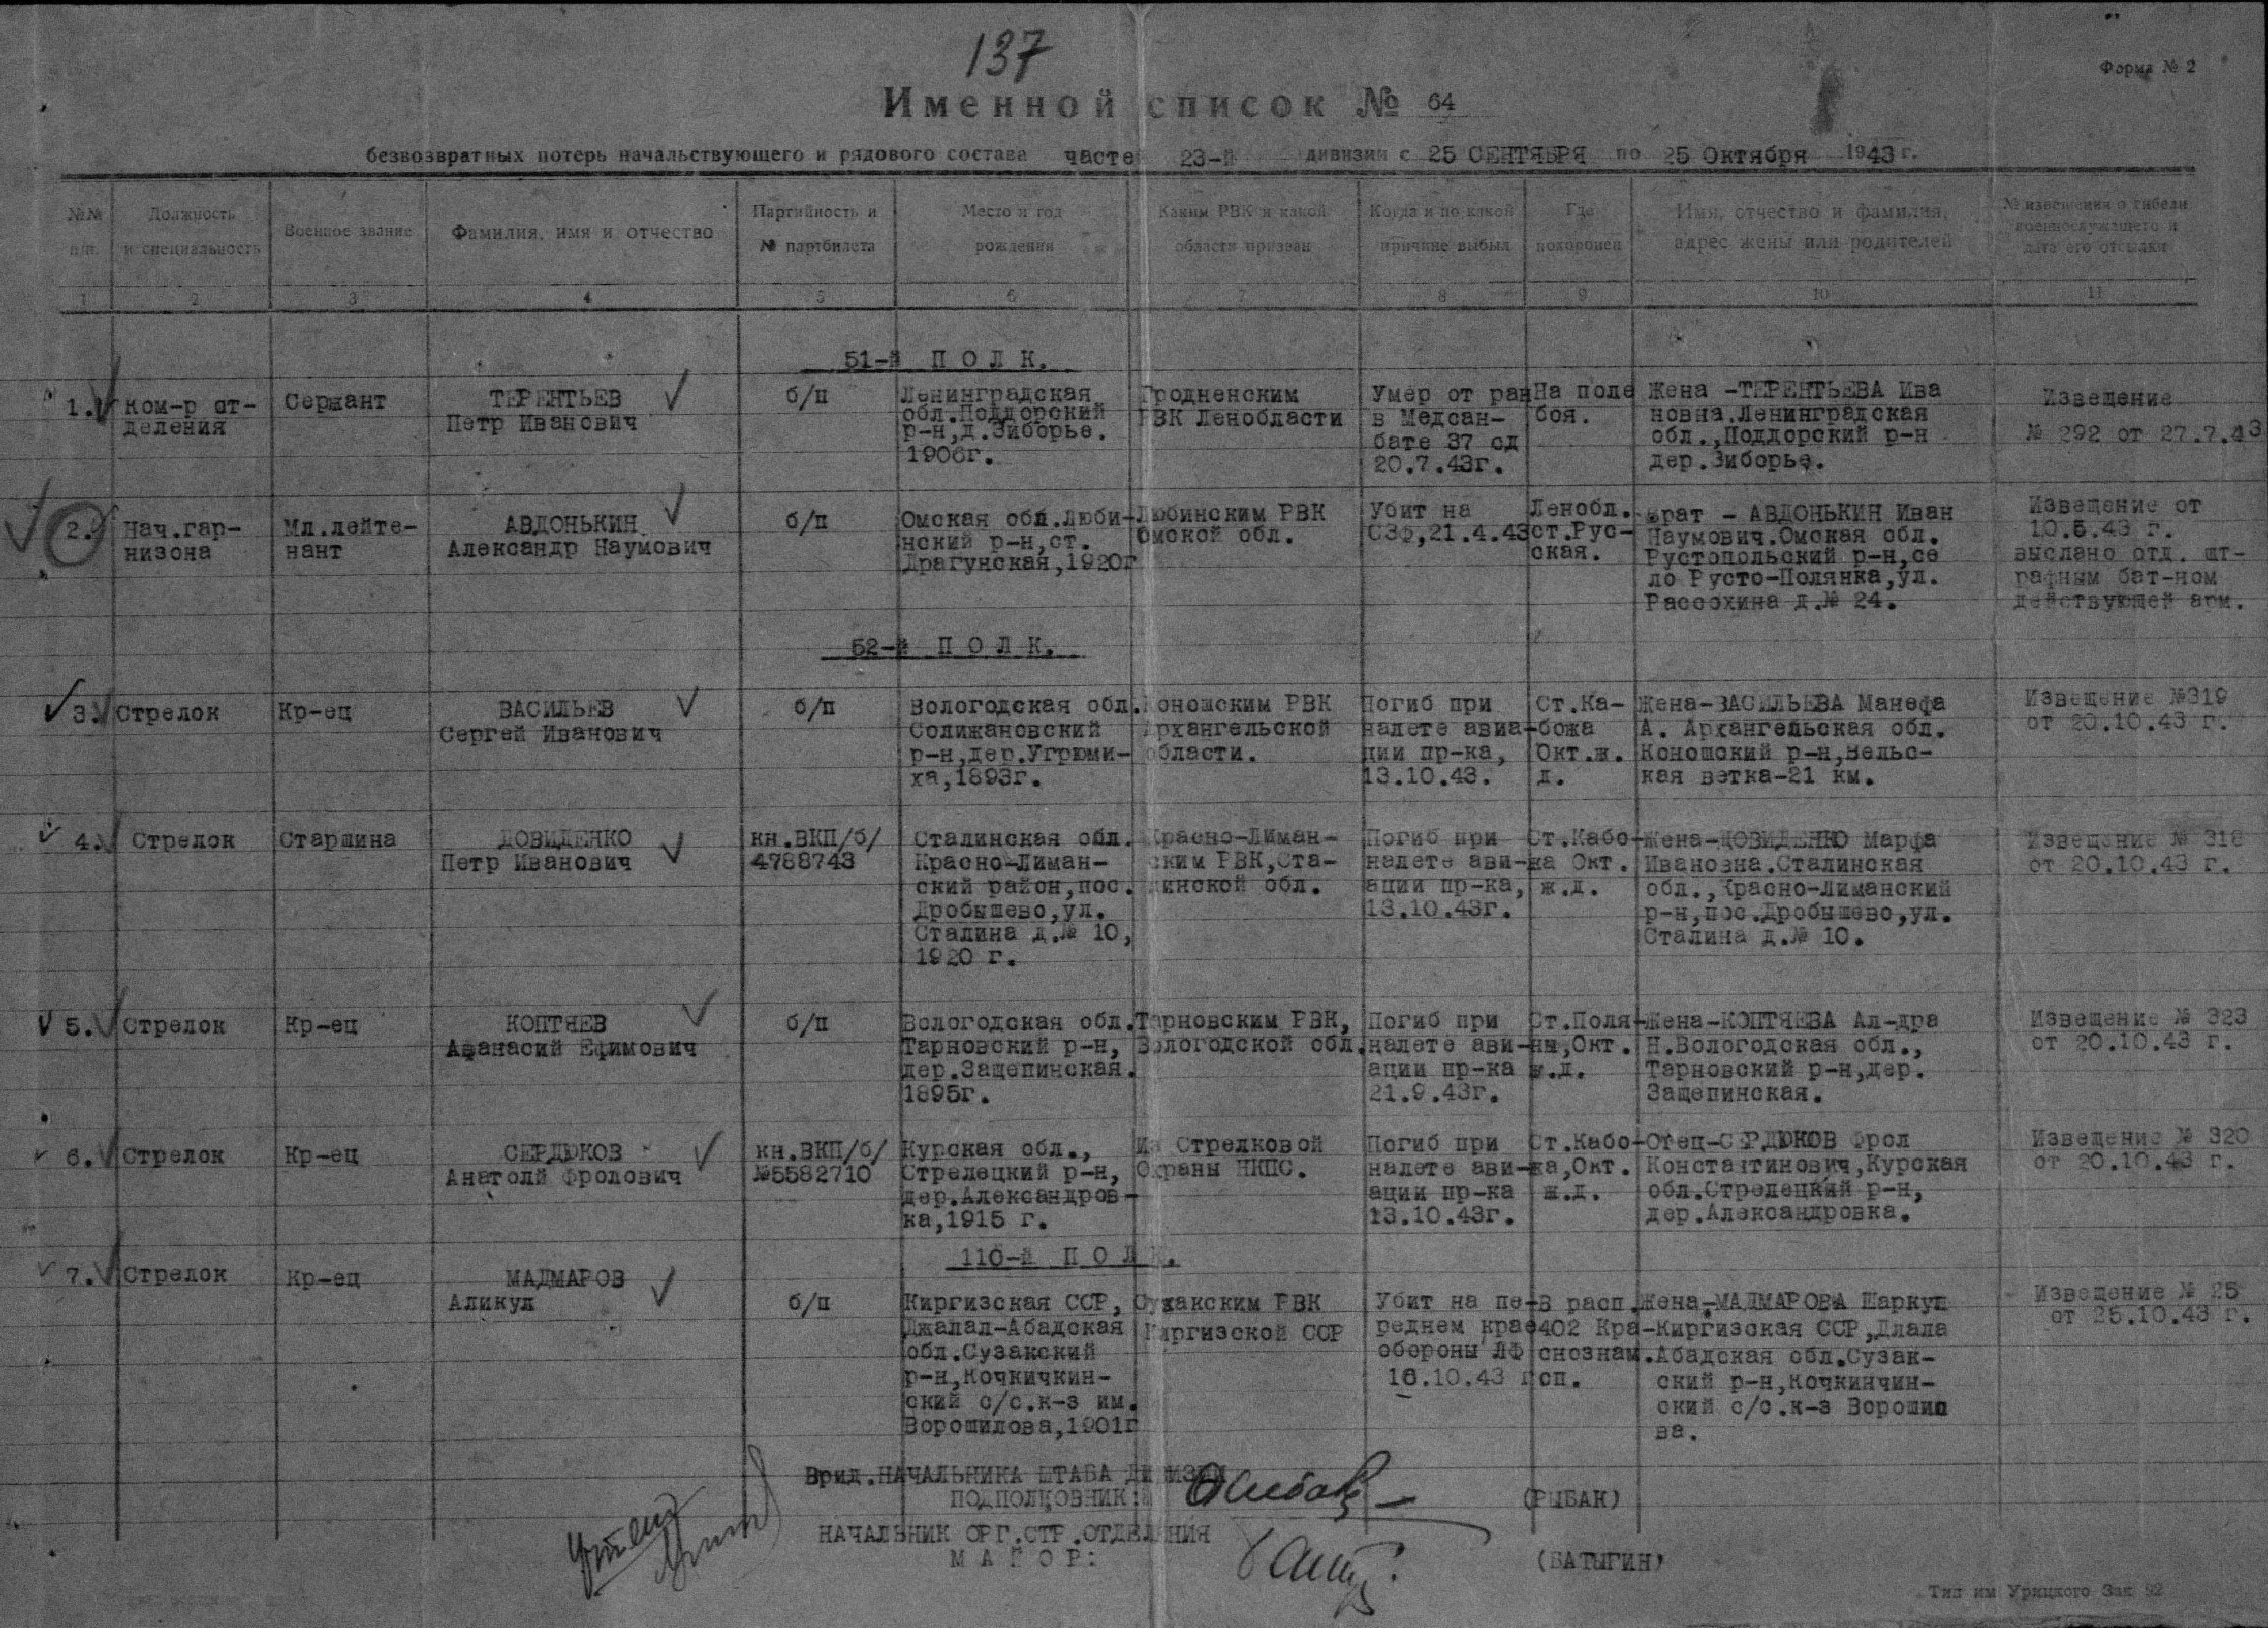 137
Форма № 2
Именной список № 64
безвозвратных потерь начальствующего и рядового состава часте 23-й дивизии с 25 СЕНТЯБРЯ по 25 Октября 1943 г.
№№ п/п.
Должность и специальность
Военное звание
Фамилия, имя и отчество
Партийность и № партбилета
Место и год рождения
Каким РВК и какой области призван
Когда и по какой причине выбыл
Где похоронен
Имя, отчество и фамилия, адрес жены или родителей
№ извещения о гибели военнослужащего и дата его отсылки
1 2 3 4 5 6 7 8 9 10 11
51-й ПОЛК.
1.
Ком-р от-
деления
Сержант
ТЕРЕНТЬЕВ
Петр Иванович
б/п
Ленинградская
обл.Поддорский
р-н,д.Зиборье.
1906г.
Гродненским
РВК Ленобласти
Умер от ран
в Медсан-
бате 37 сд
20.7.43г.
На поле
боя.
Жена -ТЕРЕНТЬЕВА Ива
новна.Ленинградская
обл.,Поддорский р-н
дер.Зиборье.
Извещение
№ 292 от 27.7.43
2.
Нач.гар-
низона
Мл.лейте-
нант
АВДОНЬКИН
Александр Наумович
б/п
Омская обл.Люби-
нский р-н,ст.
Драгунская,1920г
Любинским РВК
Омской обл.
Убит на
СЗФ,21.4.43
Ленобл.
ст.Рус-
ская.
Брат - АВДОНЬКИН Иван
Наумович.Омская обл.
Рустопольский р-н,се
ло Русто-Полянка,ул.
Рассохина д.№ 24.
Извещение от
10.5.43 г.
выслано отд. шт-
рафным бат-ном
действующей арм.
52-й ПОЛК.
3.
Стрелок
Кр-ец
ВАСИЛЬЕВ
Сергей Иванович
б/п
Вологодская обл.
Солижановский
р-н,дер.Угрюми-
ха,1893г.
Коношским РВК
Архангельской
области.
Погиб при
налете авиа-
ции пр-ка,
13.10.43.
Ст.Ка-
божа
Окт.ж.
д.
Жена-ВАСИЛЬЕВА Манефа
А. Архангельская обл.
Коношский р-н,Вельс-
кая ветка-21 км.
Извещение №319
от 20.10.43 г.
4.
Стрелок
Старшина
ДОВИДЕНКО
Петр Иванович
кн.ВКП/б/
4788743
Сталинская обл.
Красно-Лиман-
ский район,пос.
Дробышево,ул.
Сталина д.№ 10,
1920 г.
Красно-Лиман-
ским РВК,Ста-
линской обл.
Погиб при
налете ави-
ации пр-ка,
13.10.43г.
Ст.Кабо-
жа Окт.
ж.д.
Жена-ДОВИДЕНКО Марфа
Ивановна.Сталинская
обл.,Красно-Лиманский
р-н,пос.Дробышево,ул.
Сталина д.№ 10.
Извещение № 318
от 20.10.43 г.
5.
Стрелок
Кр-ец
КОПТЯЕВ
Афанасий Ефимович
б/п
Вологодская обл.
Тарновский р-н,
дер.Защепинская.
1895г.
Тарновским РВК,
Вологодской обл.
Погиб при
налете ави-
ации пр-ка
21.9.43г.
Ст.Поля-
ны,Окт.
ж.д.
Жена-КОПТЯЕВА Ал-дра
Н.Вологодская обл.,
Тарновский р-н,дер.
Защепинская.
Извещение № 323
от 20.10.43 г.
6.
Стрелок
Кр-ец
СЕРДЮКОВ
Анатолй Фролович
кн.ВКП/б/
№5582710
Курская обл.,
Стрелецкий р-н,
дер.Александров-
ка,1915 г.
Из Стрелковой
Охраны НКПС.
Погиб при
налете ави-
ации пр-ка
13.10.43г.
Ст.Кабо-
жа,Окт.
ж.д.
Отец-СЕРДЮКОВ Фрол
Константинович,Курская
обл.Стрелецкий р-н,
дер.Александровка.
Извещение № 320
от 20.10.43 г.
110-й ПОЛК.
7.
Стрелок
Кр-ец
МАДМАРОВ
Аликул
б/п
Киргизская ССР,
Джалал-Абадская
обл.Сузакский
р-н,Кочкичкин-
ский с/с.к-з им.
Ворошилова,1901г
Сузакским РВК
Киргизской ССР
Убит на пе-
реднем крае
обороны ЛФ
16.10.43 г
В расп.
402 Кра-
снознам.
сп.
Жена-МАДМАРОВА Шаркул
Киргизская ССР,Длала
Абадская обл.Сузак-
ский р-н,Кочкинчин-
ский с/с.к-з Ворошил
ва.
Извещение № 25
от 25.10.43 г.
Врид.НАЧАЛЬНИКА ШТАБА ДИВИЗИИ
ПОДПОЛКОВНИК:
(РЫБАК)
НАЧАЛЬНИК ОРГ.СТР.ОТДЕЛЕНИЯ
МАЙОР:
(БАТЫГИН)
Тип им Урицкого Зак 92